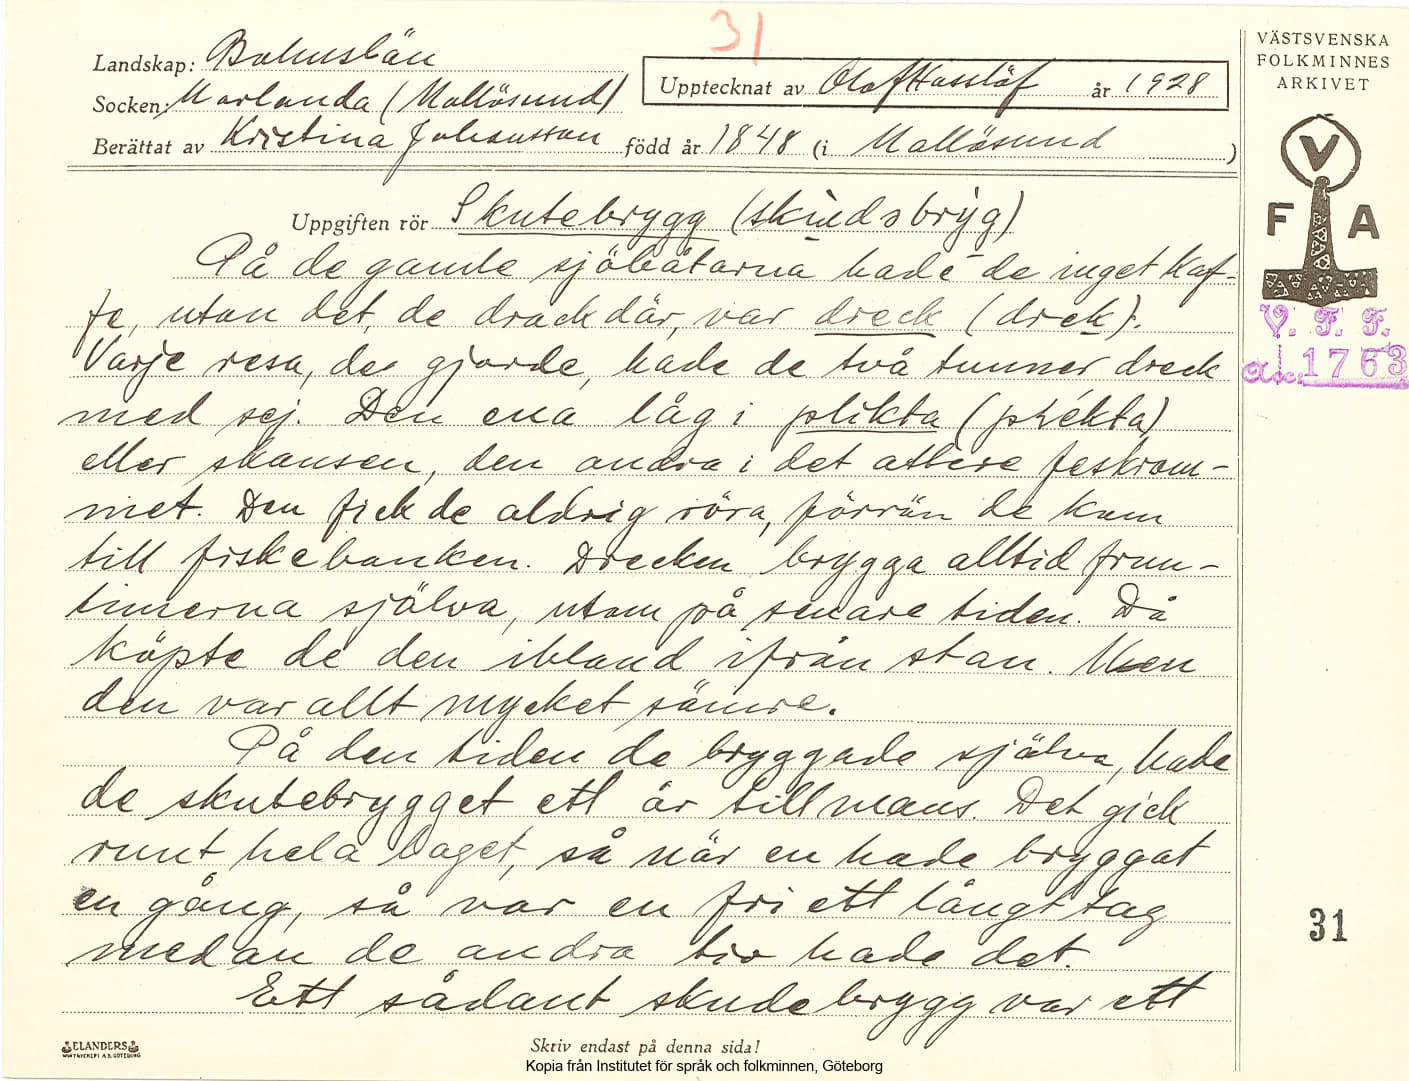 31
Landskap: Bohuslän
Socken: Morlanda (Mollösund)
Upptecknat av Olof Hasslöf år 1928
Berättat av Kristina Johansson född år 1848 (i Mollösund)
VÄSTSVENSKA
FOLKMINNES
ARKIVET
V
F A
V. F. F.
1763
Uppgiften rör Skutebrygg (skudsbryg)
På de gamle sjöbåtarna hade de inget kaf-
fe, utan det, de drack där, var dreck (drek).
Varje resa, de gjorde, hade de två tunner dreck
med sej. Den ena låg i plikta (plékta)
eller skansen, den andra i det attere feskrom-
met. Den fick de aldrig röra, förrän de kom
till fiskebanken. Drecken brygga alltid frun-
timerna själva, utom på senare tiden. Då
köpte de den ibland ifrån stan. Men
den var allt mycket sämre.
På den tiden de bryggade själva, hade
de skutebrygget ett år till mans. Det gick
runt hela laget, så när en hade bryggat
en gång, så var en fri ett långt tag
medan de andra tio hade det.
Ett sådant skudebrygg var ett
31
ELANDERS
Skriv endast på denna sida!
Kopia från Institutet för språk och folkminnen, Göteborg